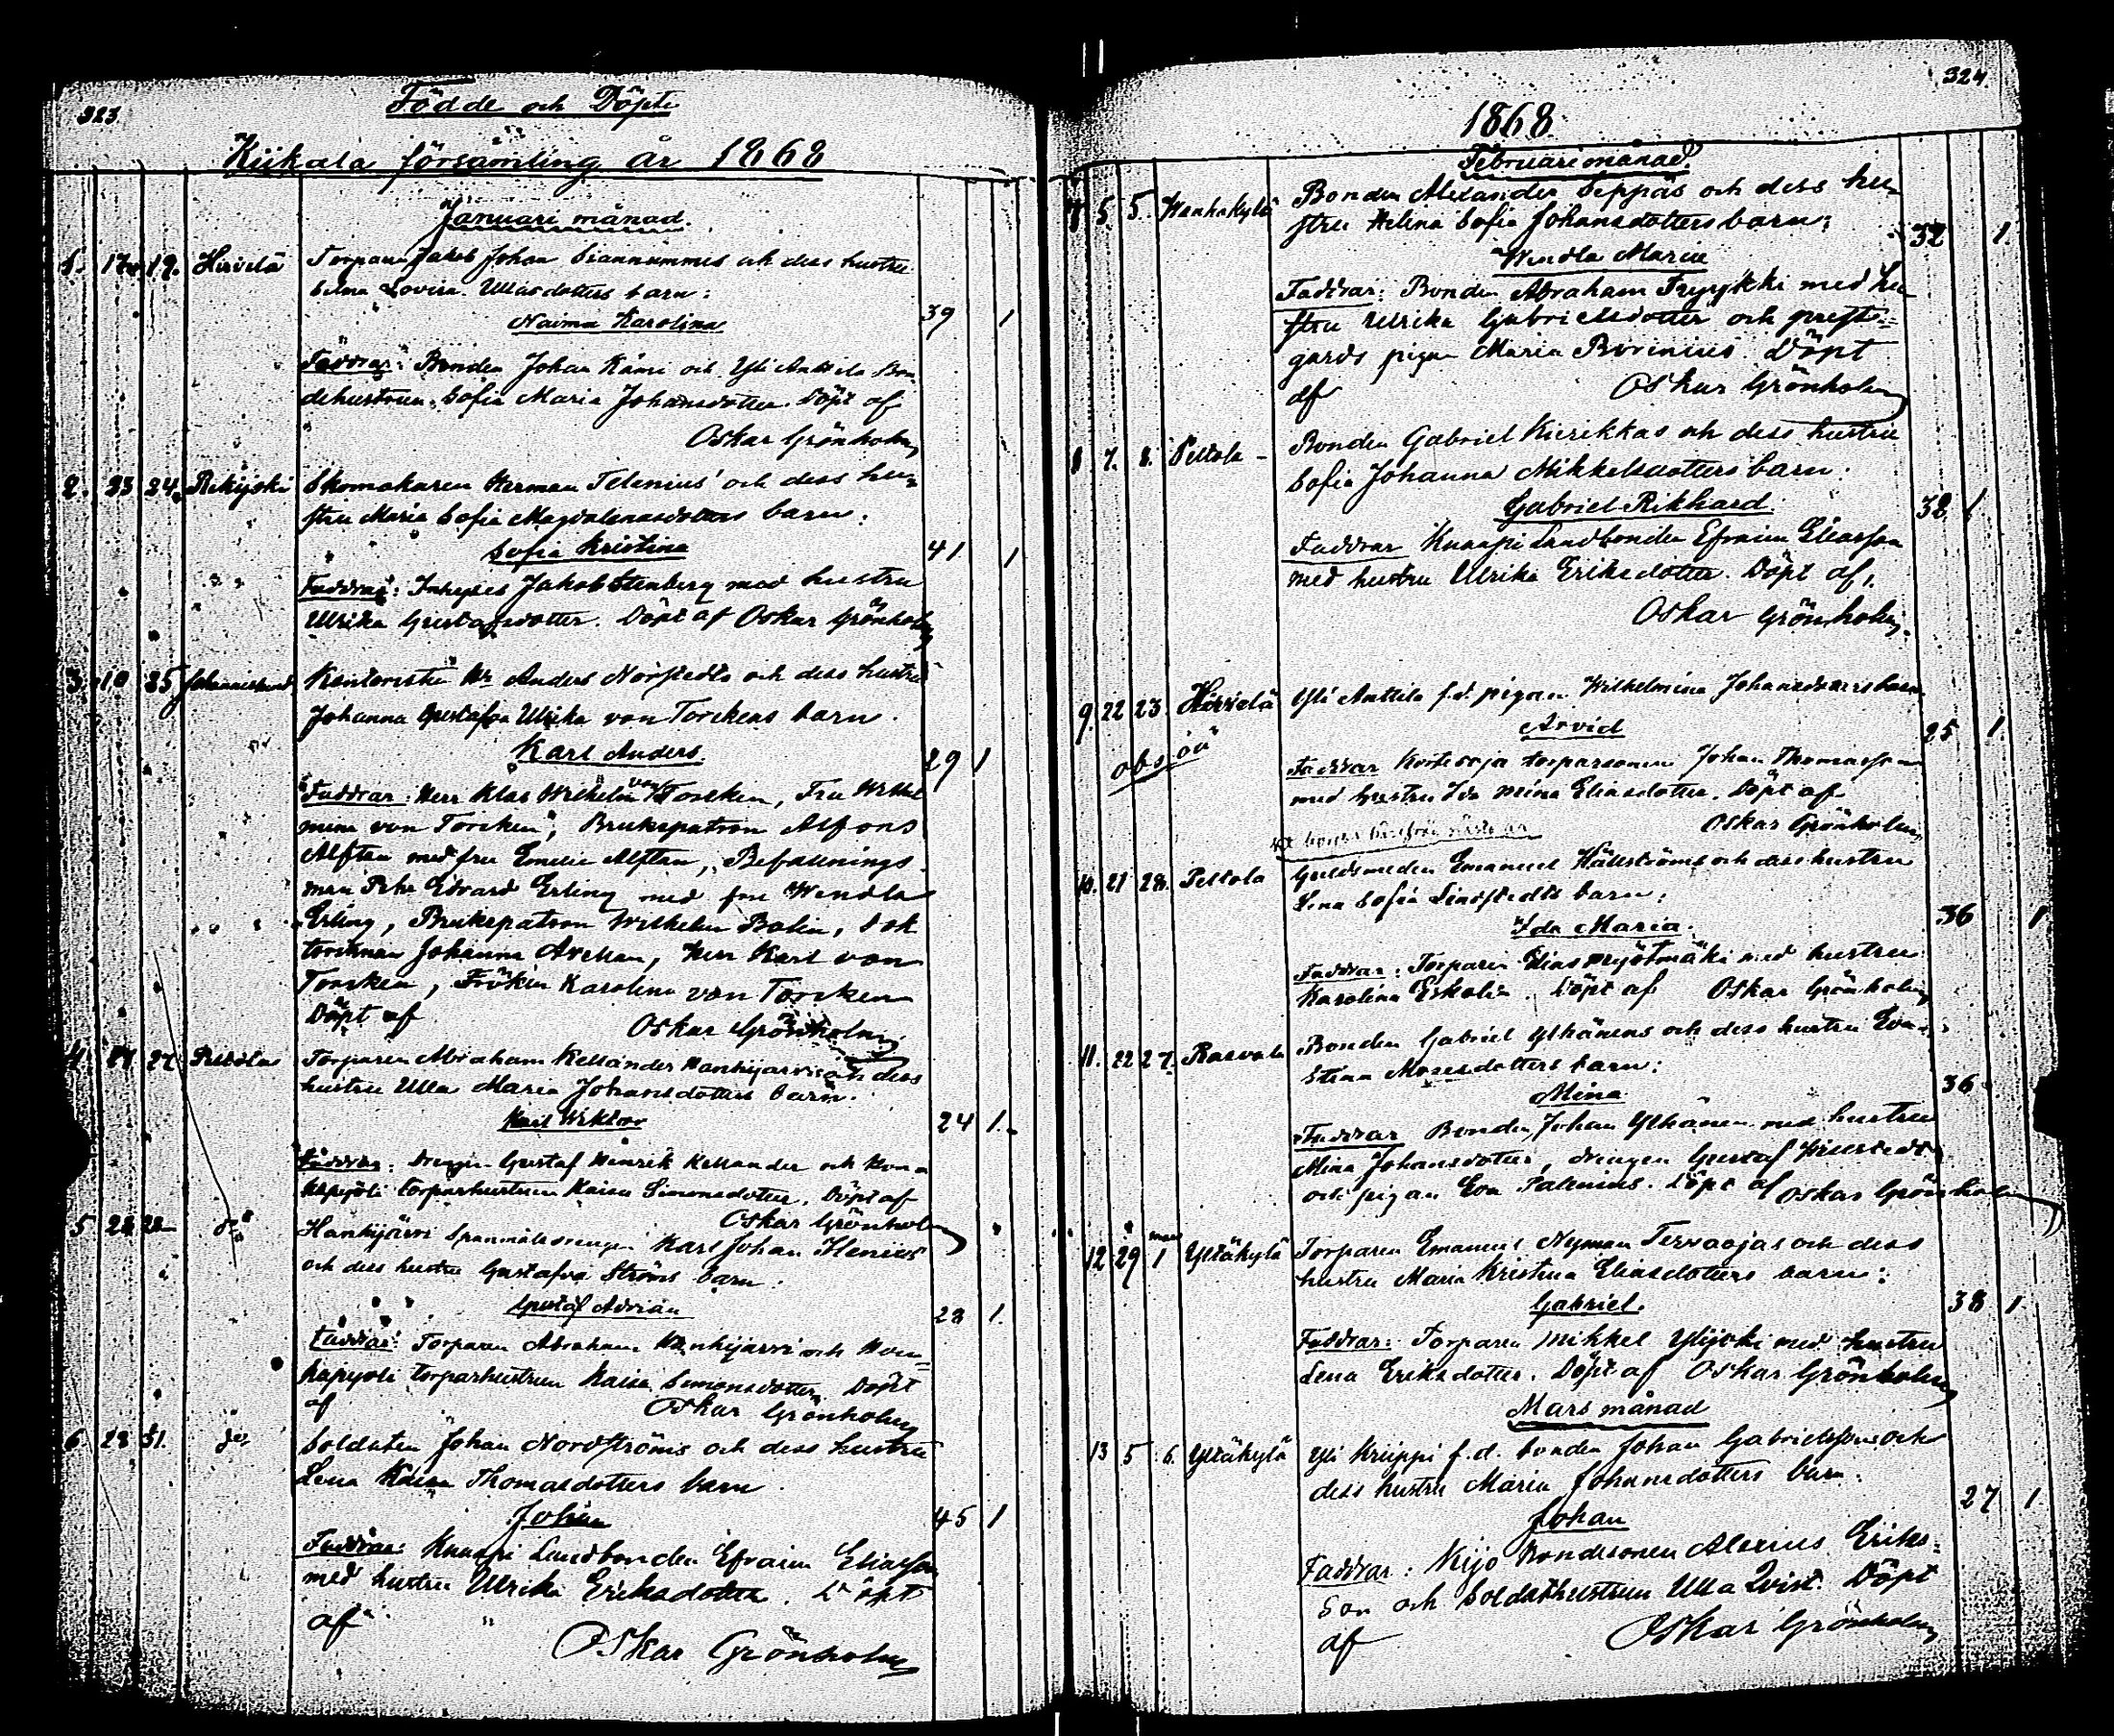 323.
Födde och Döpte
Kiikala församling År 1868
Januari månad.
1. 17 19. Hirvelä Torparen Jakob Johan och dess hustru
Lovisa Ullasdotters barn:
Naima Karolina 39 1
Faddrar: Bonden Johan och Yli Anttila Bon-
dehustrun Sofia Maria Johansdotter. Döpt af
Oskar Grönholm
2. 23 24. Rekijoki Skomakaren Herman Telenius' och dess hu-
stru Maria Sofia Magdalenasdotters barn:
Sofia Kristina 41 1
Faddrar: Inhyses Jakob Stenberg med hustru
Ulrika Gustafsdotter. Döpt af Oskar Grönholm
3. 10 25 Johanneslund Kontoristen Hr Anders Norstedts och dess hustru
Johanna Gustafva Ulrika von Torckens barn.
Karl Anders. 29 1
Faddrar: Herr Klas Wilhelm von Torcken, Fru Wilhel
mina von Torcken, Brukspatron Alfons
Alftan med fru Emelie Alftan, Befallnings
man Pehr Edvard Erling med fru Wendla
Erling, Brukspatron Wilhelm Bolin, Dok
torinnan Johanna Arellan, Herr Karl von
Torcken, Fröken Karolina von Torcken
Döpt af Oskar Grönholm
4. 27 27 Peltola Torparen Abraham Kellanders Hanhijarvi och dess
hustru Ulla Maria Johansdotters barn.
Karl Wiktor 24 1.
Faddrar: Drengen Gustaf Henrik Kellander och
torparhustrun Kaisa Simonsdotter. Döpt af
Oskar Grönholm
5 28 28 do Hanhijärvi Spanmålsdrengen Karl Johan Ilenius
och dess hustru Gustafva Ströms barn.
Gustaf Adrian 28 1.
Faddrar: Torparen Abraham Hanhijarvi och
torparhustrun Kaisa Simonsdotter. Döpt
af Oskar Grönholm
6. 28 31. do Soldaten Johan Nordströms och dess hustru
Lena Kaisa Thomasdotters barn
Johan 45 1
Faddrar: Knaapi Landbonden Efraim Eliasson
med hustru Ulrika Eriksdotter. Döpt
af
Oskar Grönholm
324
1868
Februari månad.
7 5 5. Wanhakylä Bonden Alexander Seppäs och dess hu-
stru Helena Sofia Johansdotters barn:
Wendla Maria 32 1.
Faddrar: Bonden Abraham Tryykki med hu-
stru Ulrika Gabrielsdotter och prest-
gards pigan Maria Borinius. Döpt
af Oskar Grönholm
8 7. 8. Peltola Bonden Gabriel Kierikkas och dess hustru
Sofia Johanna Mikkelsdotters barn:
Gabriel Rikhard. 32 1
Faddrar Knaapi Landbonden Efraim Eliasson
med hustru Ulrika Eriksdotter. Döpt af,
Oskar Grönholm.
9. 22 23. Hirvelä Yli Anttila f.d. pigan Wilhelmina Johansdotters barn
Arvid 25 1.
Faddrar torparsonen Johan Thomasson
med hustru Ida Mina Eliasdotter. Döpt af
Oskar Grönholm
10. 21 28. Peltola Guldsmeden Emanuel Hällströms och dess hustru
Lena Sofia Lindstedts barn:
Ida Maria. 36 1
Faddrar: Torparen Elias Myötmäki med hustru
Karolina Eskolin. Döpt af Oskar Grönholm
11. 22 27. Rasvala Bonden Gabriel Ylhänens och dess hustru Eva
Stina Mosesdotters barn:
Mina 36
Faddrar Bonden Johan Ylhänen med hustru
Mina Johansdotter, drengen Gustaf
och pigan Eva Palenius. Döpt af Oskar Grönholm
12 29 mars 1 Yltäkylä Torparen Emanuel Nyman Tervaojas och dess
hustru Maria Kristina Eliasdotters barn:
Gabriel. 38 1.
Faddrar: Torparen Mikkel Ylijoki med hustru
Lena Eriksdotter. Döpt af Oskar Grönholm
Mars månad
13 5 6. Yltäkylä Yli Kruppi f.d. bonden Johan Gabrielssons och
dess hustru Maria Johansdotters barn:
Johan 27 1
Faddrar: Kijo Bondesonen Alexius Eriks-
son och Soldathustrun Ulla Qvist. Döpt
af Oskar Grönholm